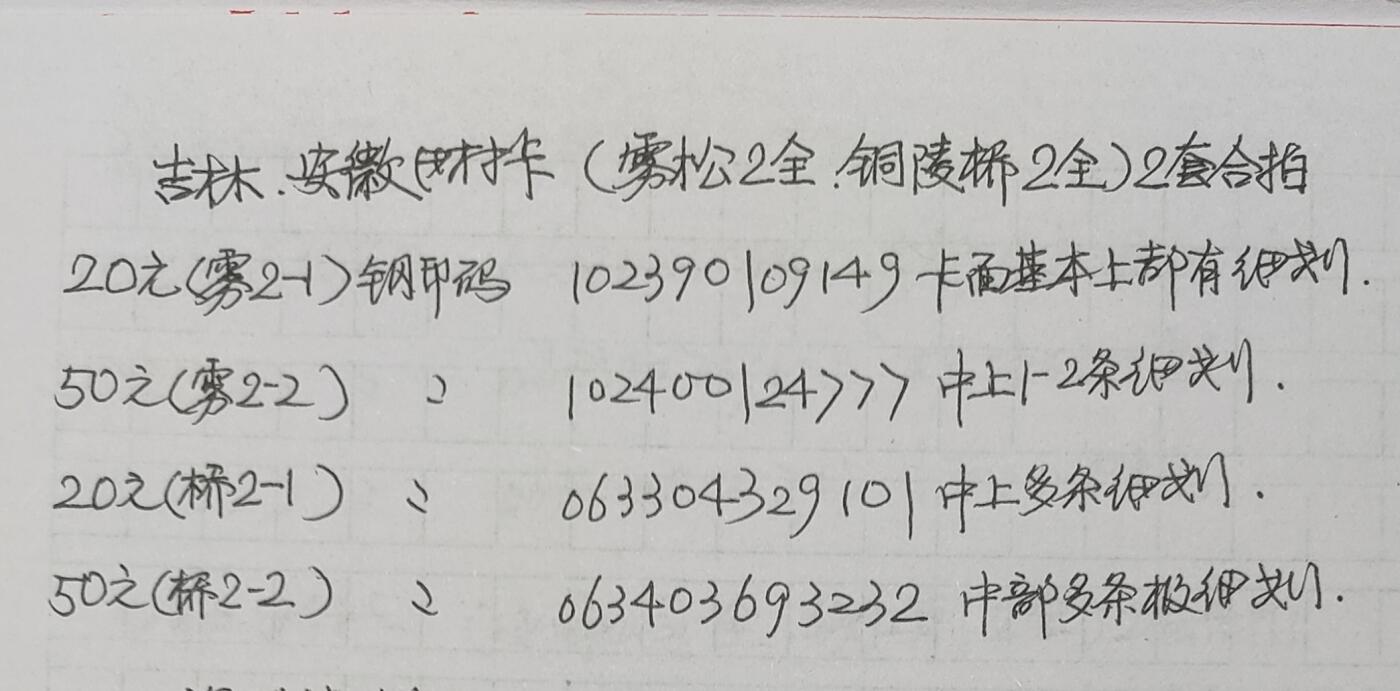 吉林.安徽田村卡(雾松2全.铜陵桥2全)2套合拍
20元(雾2-1)钢印码 102390109149 卡面基本上都有细划.
50元(雾2-2) 〃 102400124777 中上1-2条细划.
20元(桥2-1) 〃 063304329101 中上多条细划.
50元(桥2-2) 〃 063403693232 中部多条极细划.